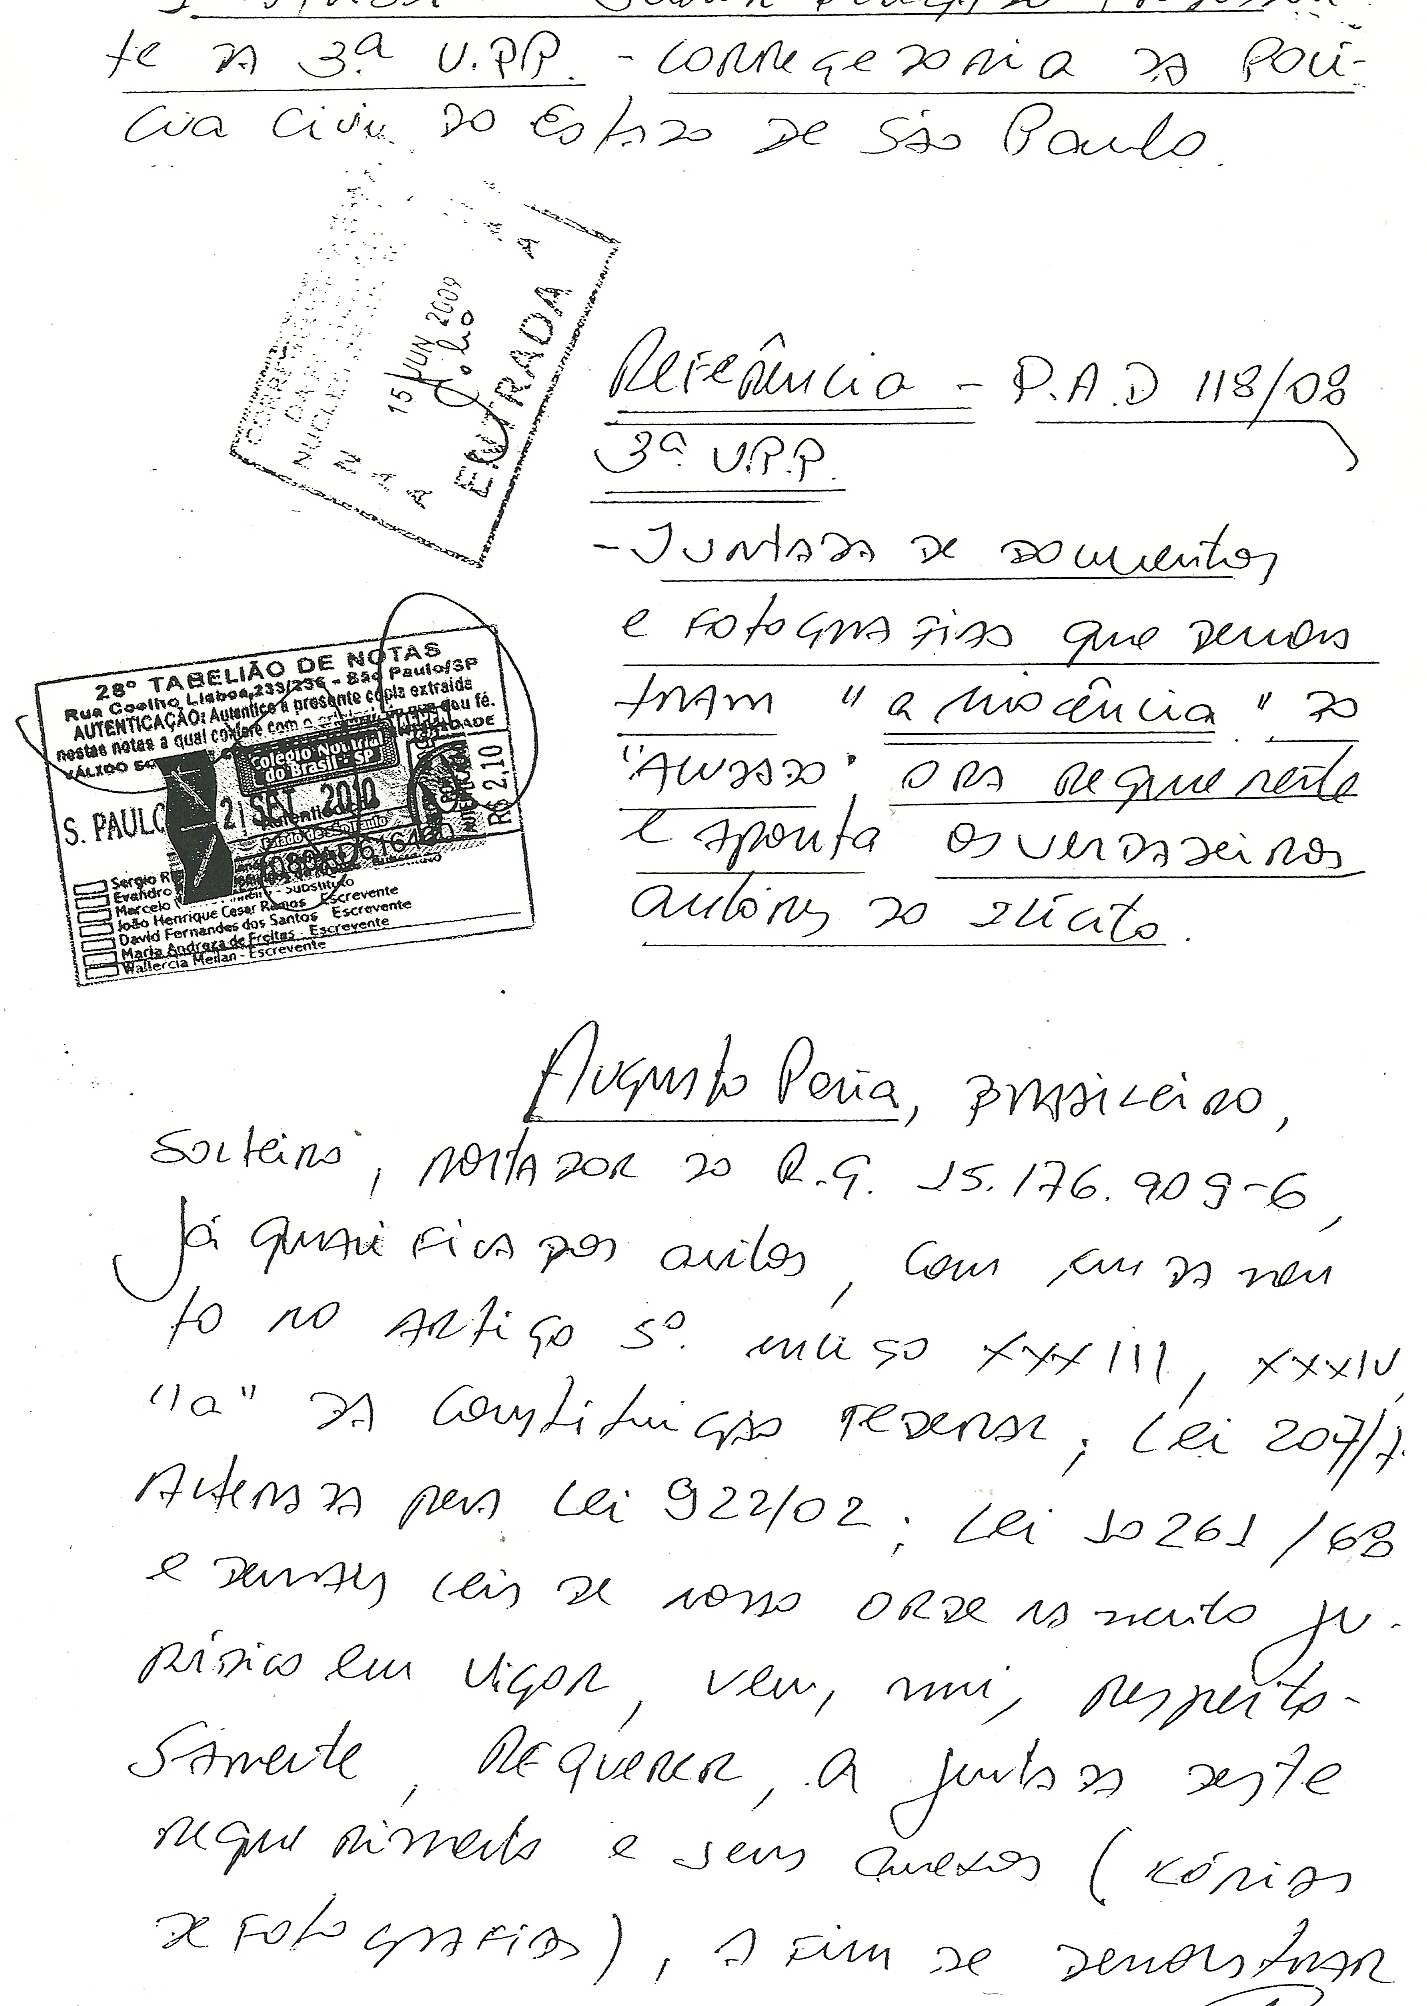 te da 3ª U.P.P. - Corregedoria da Polí-
cia Civil do Estado de São Paulo.
15 JUN 2009
ENTRADA
Referência - P.A.D 118/08
3ª U.P.P.
- Juntada de documentos
e fotografias que demons
tram "a inocência" do
"Acusado", ora requerente
e aponta os verdadeiros
autores do ilícito.
28º TABELIÃO DE NOTAS
Rua Coelho Lisboa, 233/236 - São Paulo/SP
AUTENTICAÇÃO: Autentico a presente cópia extraída
nestas notas a qual confere com o original que dou fé.
VÁLIDO
Colégio Notarial
do Brasil - SP
S. PAULO 21 SET 2010
R$ 2,10
Sergio
Evandro
Marcelo Substituto
João Henrique Cesar Ramos Escrevente
David Fernandes dos Santos Escrevente
Maria Andreza de Freitas - Escrevente
Wallercia Meilan - Escrevente
Augusto Pena, brasileiro,
solteiro, portador do R.G. 15.176.909-6,
já qualificado nos autos, com
to no artigo 5º inciso XXXIII, XXXIV,
"a" da Constituição Federal; Lei 207/7
alterada pela Lei 922/02; Lei 10261/68
e demais leis de nosso ordenamento ju-
rídico em vigor, vem, mui, respeito-
samente, requerer, a juntada deste
requerimento e seus anexos (cópias
de fotografias), a fim de demonstrar